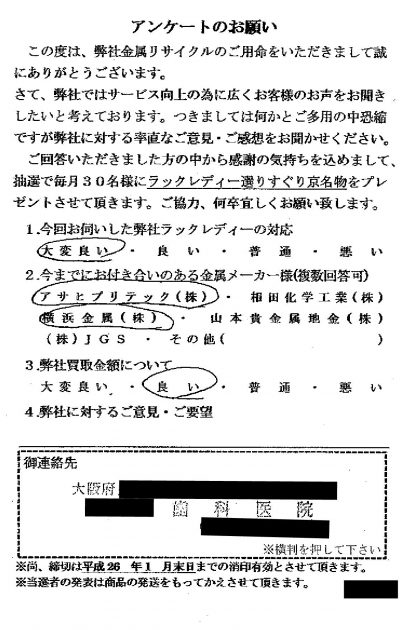 アンケートのお願い
この度は、弊社金属リサイクルのご用命をいただきまして誠
にありがとうございます。
さて、弊社ではサービス向上の為に広くお客様のお声をお聞き
したいと考えております。つきましては何かとご多用の中恐縮
ですが弊社に対する率直なご意見・ご感想をお聞かせください。
ご回答いただきました方の中から感謝の気持ちを込めまして、
抽選で毎月30名様にラックレディー選りすぐり京名物をプレ
ゼントさせて頂きます。ご協力、何卒宜しくお願い致します。
1.今回お伺いした弊社ラックレディーの対応
大変良い ・ 良い ・ 普通 ・ 悪い
2.今までにお付き合いのある金属メーカー様(複数回答可)
アサヒプリテック(株) ・ 相田化学工業(株)
横浜金属(株) ・ 山本貴金属地金(株)
(株)JGS ・ その他( )
3.弊社買取金額について
大変良い ・ 良い ・ 普通 ・ 悪い
4.弊社に対するご意見・ご要望
御連絡先
大阪府
歯科医院
※横判を押して下さい
※尚、締切は平成26 年1 月末日までの消印有効とさせて頂きます。
※当選者の発表は商品の発送をもってかえさせて頂きます。